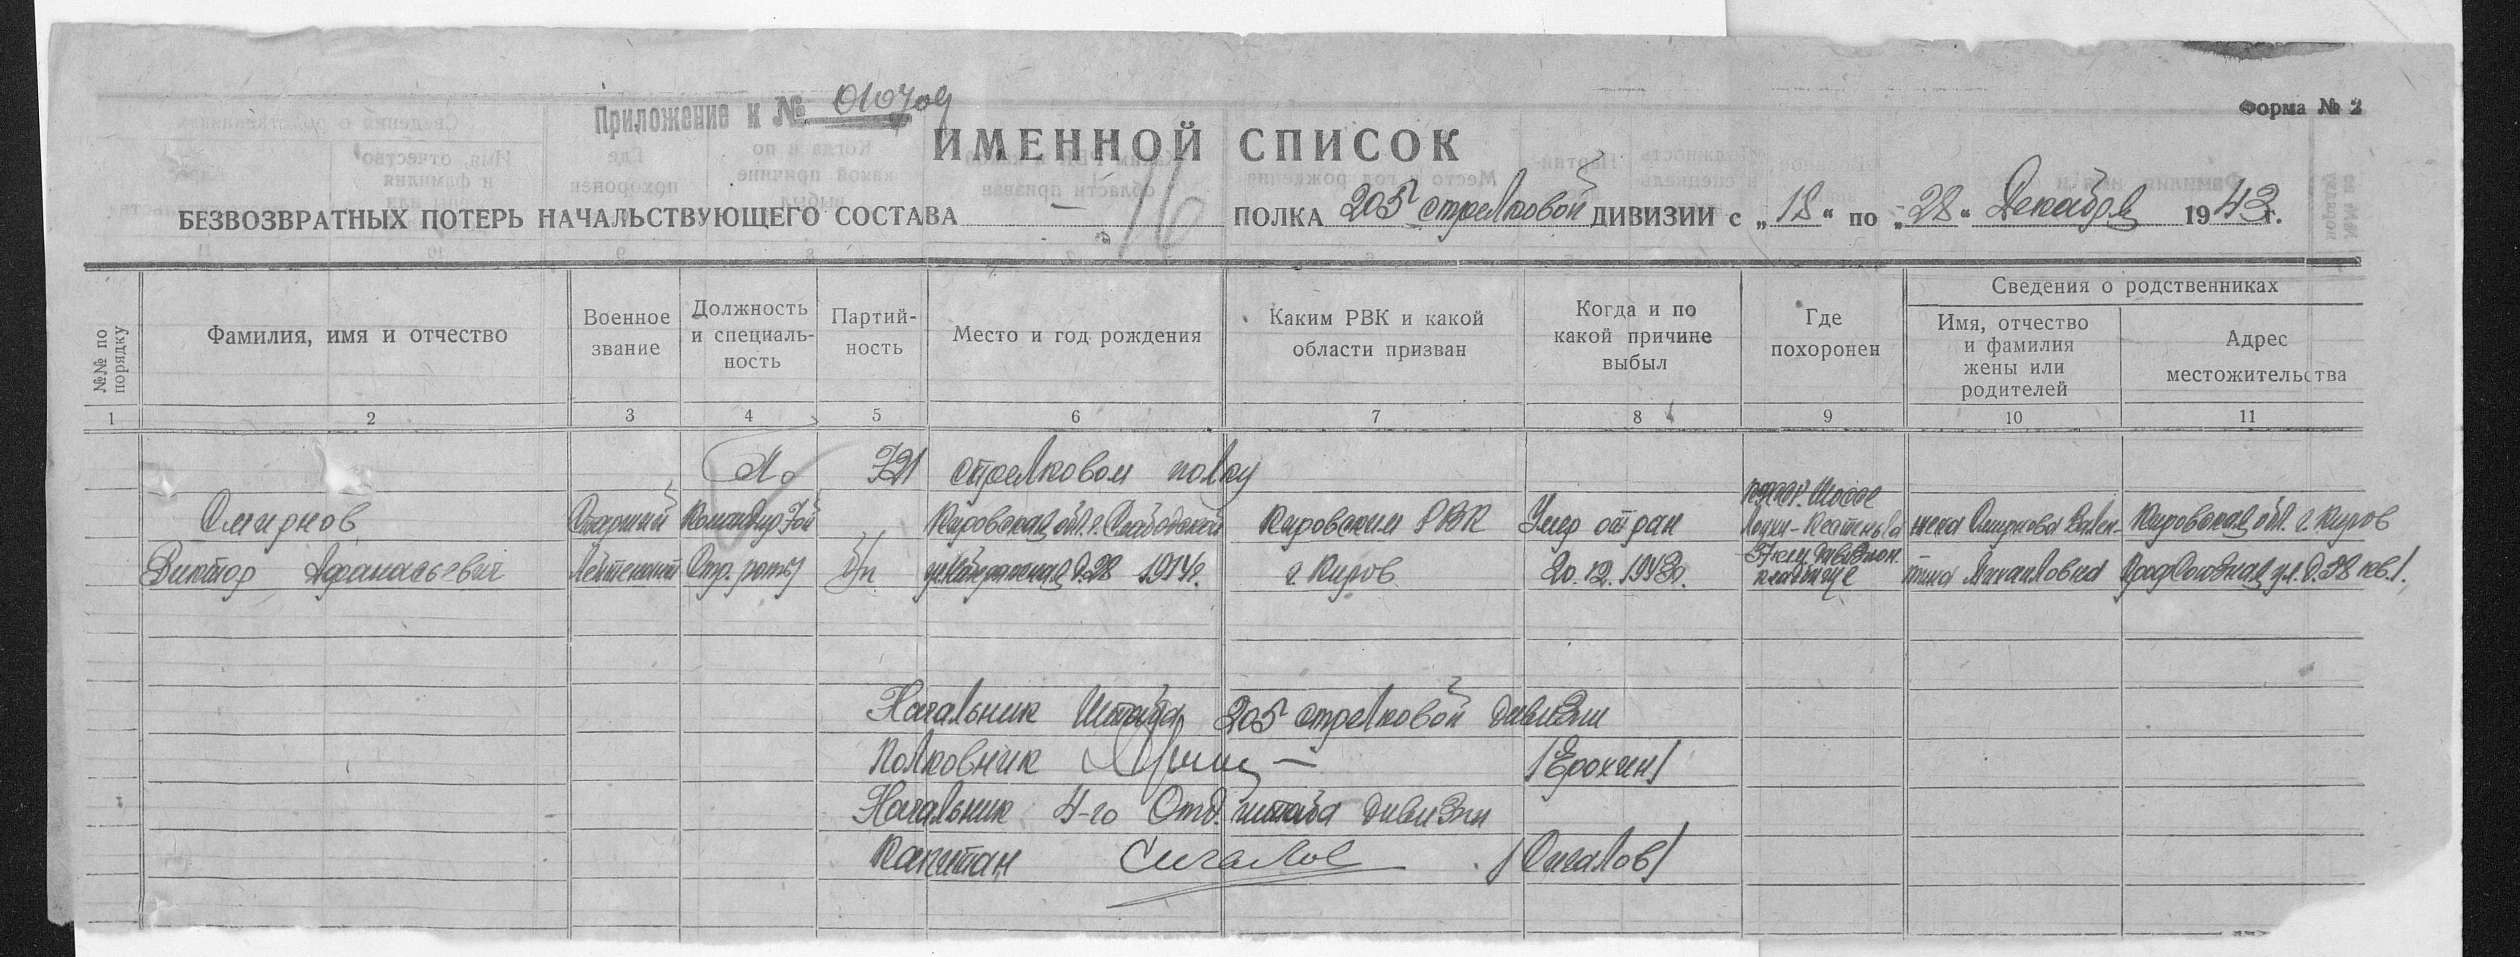 Приложение к № 010709
Форма № 2
ИМЕННОЙ СПИСОК
16
БЕЗВОЗВРАТНЫХ ПОТЕРЬ НАЧАЛЬСТВУЮЩЕГО СОСТАВА — ПОЛКА 205 стрелковой ДИВИЗИИ с „18“ по „28“ Декабря 1943 г.
№№ по порядку
Фамилия, имя и отчество
Военное звание
Должность и специальность
Партийность
Место и год рождения
Каким РВК и какой области призван
Когда и по какой причине выбыл
Где похоронен
Сведения о родственниках
Имя, отчество и фамилия жены или родителей
Адрес местожительства
1 2 3 4 5 6 7 8 9 10 11
По 721 стрелковом полку
Смирнов Старший Командир Кировская обл. г. Слободской Кировским РВК Умер от ран шоссе Лоухи-Кестеньга жена Смирнова Вален- Кировская обл. г. Киров
Виктор Афанасьевич Лейтенант Стр. роты б/п д. 28 1914г. г. Киров 20.12.1943г. 37 км дивизион. кладбище тина Михайловна Профсоюзная ул. д. 28 кв. 1.
Начальник Штаба 205 стрелковой дивизии
Полковник /Ерохин/
Начальник 4-го Отд. штаба дивизии
Капитан Сигалов /Сигалов/